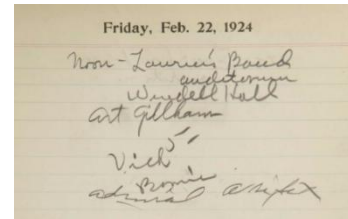 Friday, Feb. 22, 1924
Noon - Laurier's Band
auditorium
Wendell Hall
Art Gillham
Vick
Bonnie
admiral